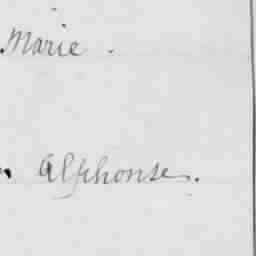 Marie.
Alphonse.